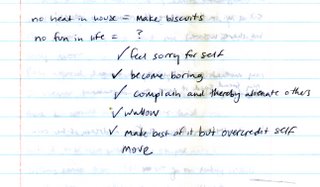 no heat in house = make biscuits
no fun in life = ?
✓ feel sorry for self
✓ become boring
✓ complain and thereby alienate others
✓ wallow
✓ make best of it but overcredit self
move